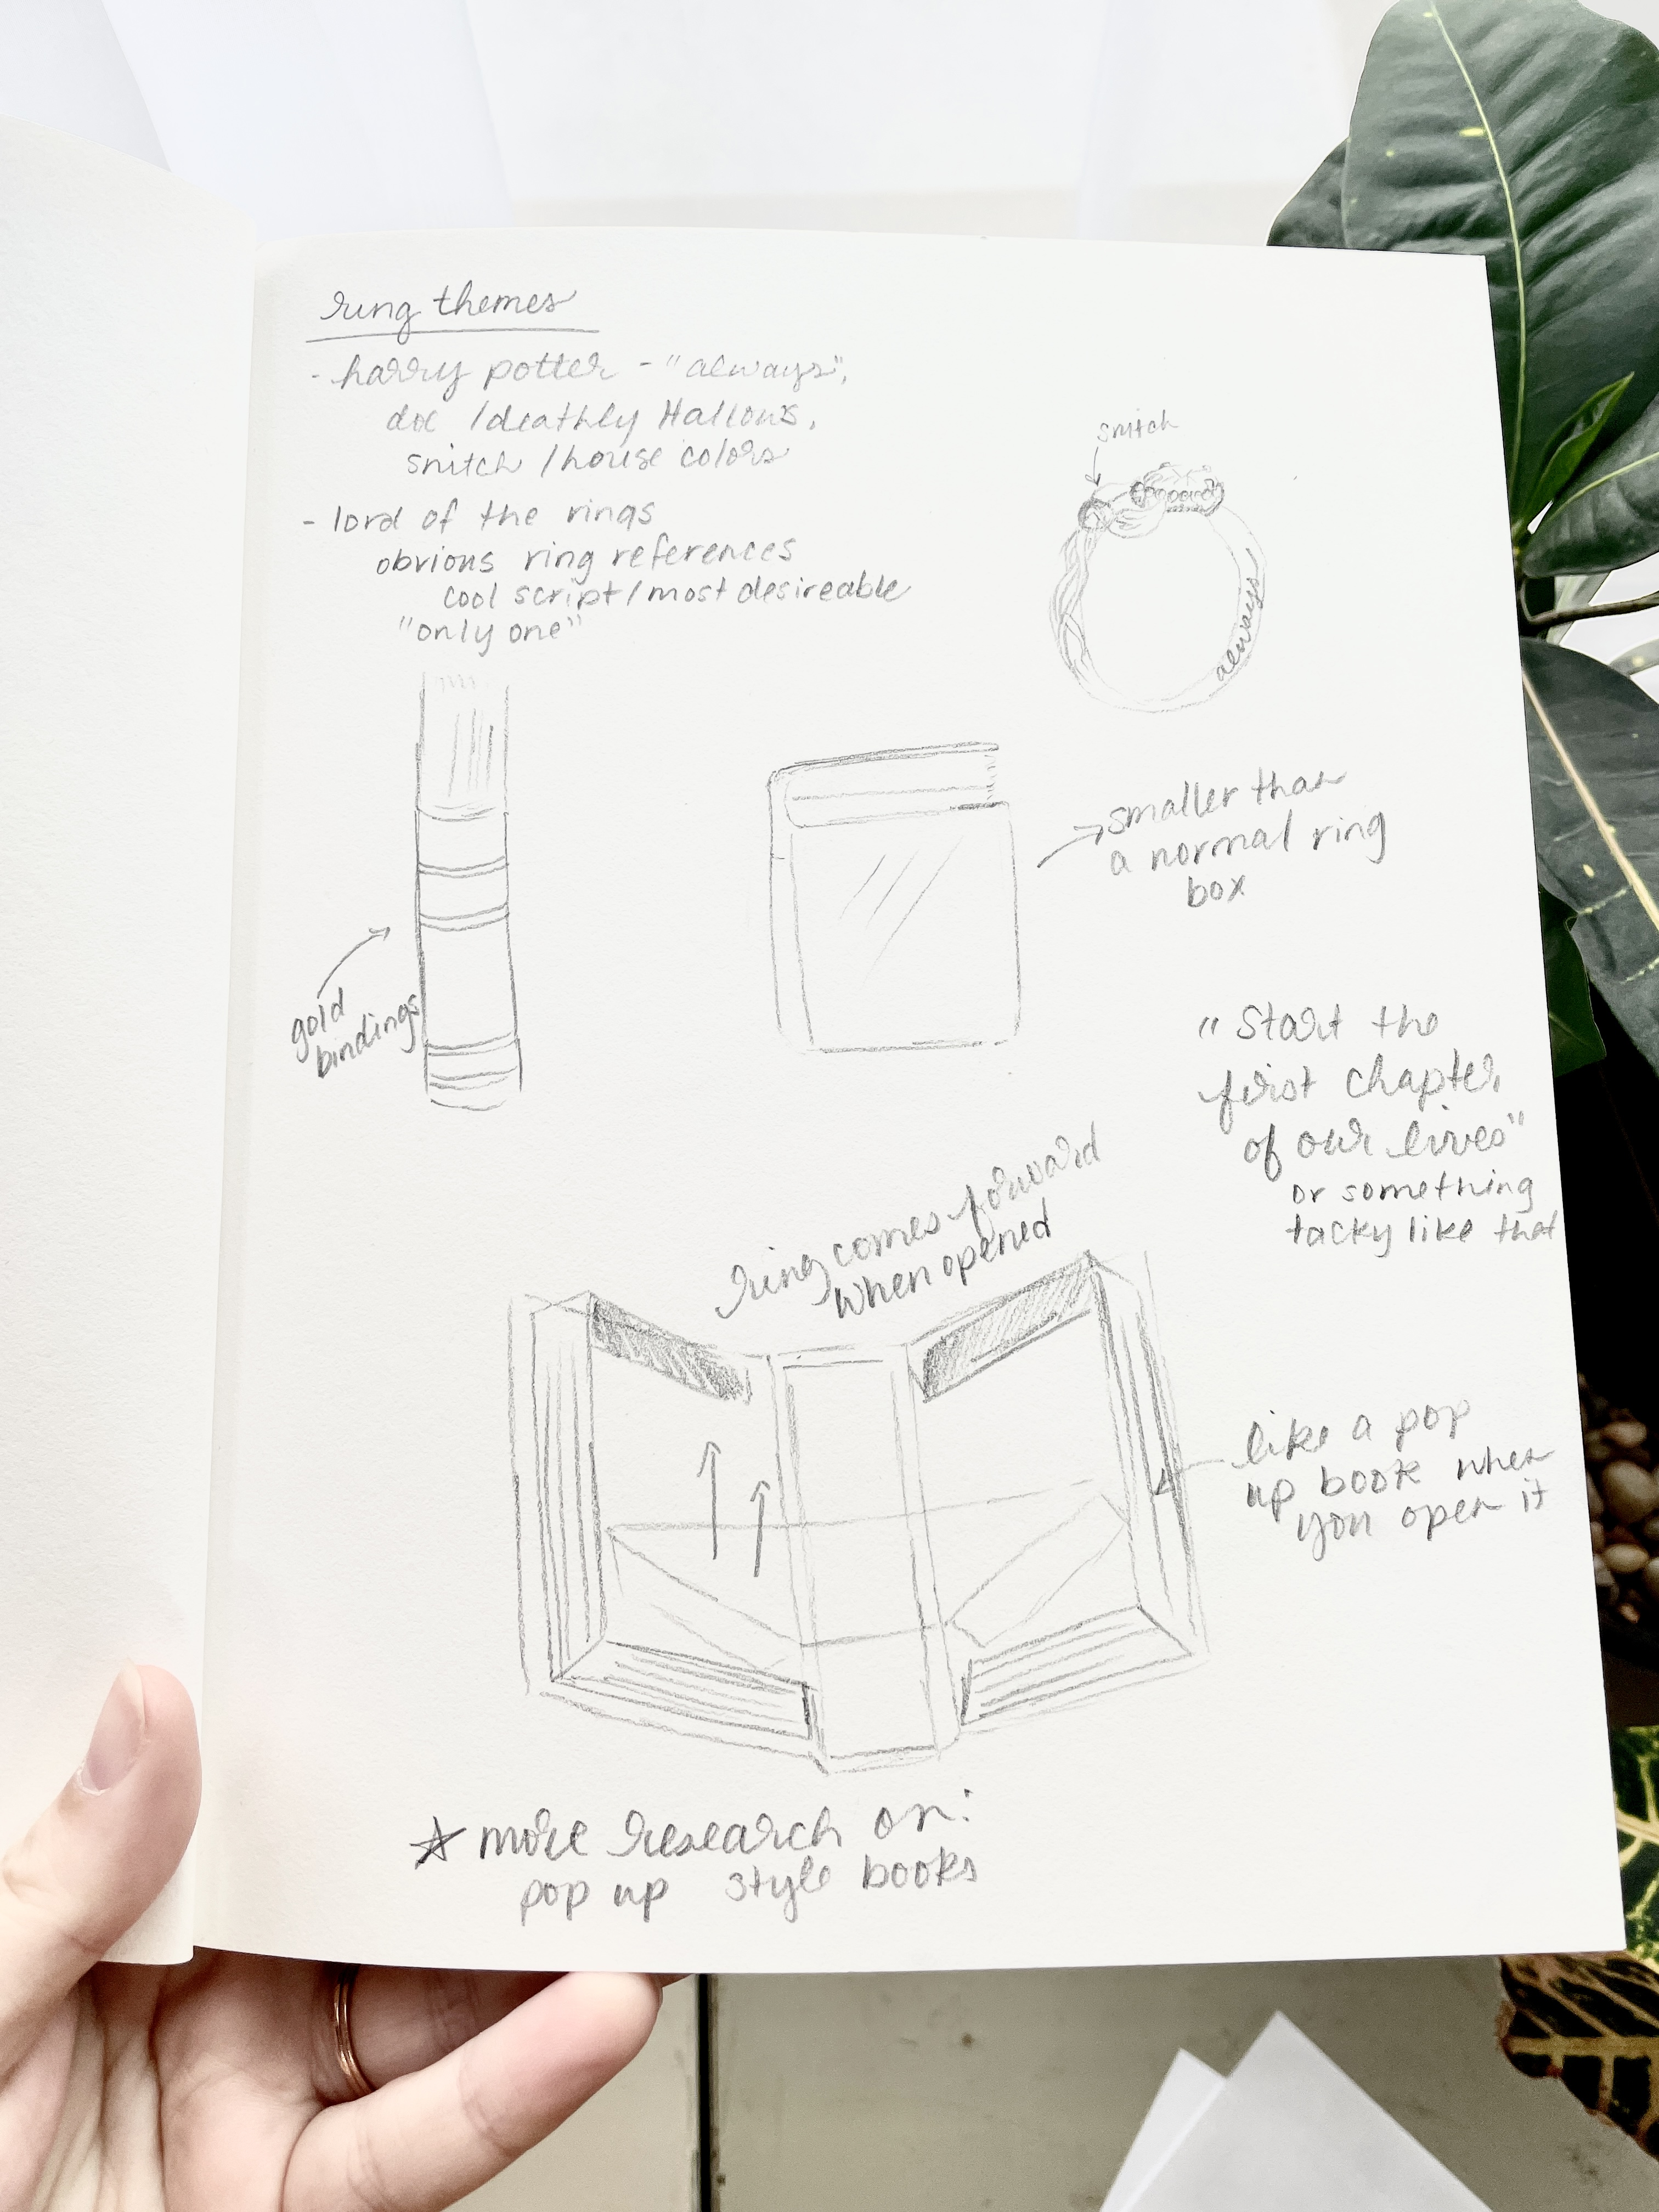 ring themes
- harry potter - "always",
doe / deathly Hallows,
snitch / house colors
- lord of the rings
obvious ring references
cool script / most desireable
"only one"
snitch
always
smaller than
a normal ring
box
gold
bindings
"Start the
first chapter
of our lives"
or something
tacky like that
ring comes forward
when opened
like a pop
up book when
you open it
☆ more research on:
pop up style books